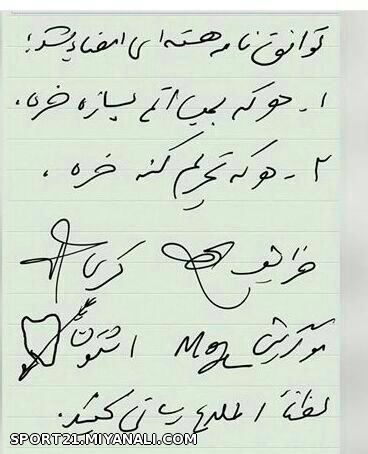 توافق نامه هسته ای امضاء شد؛
۱ - هوکه بمب اتم بسازه خره.
۲ - هوکه تحریم کنه خره.
ظریف کری
موگرینی Mog اشتون
لطفاً اطلاع رسانی کنید.
SPORT21.MIYANALI.COM